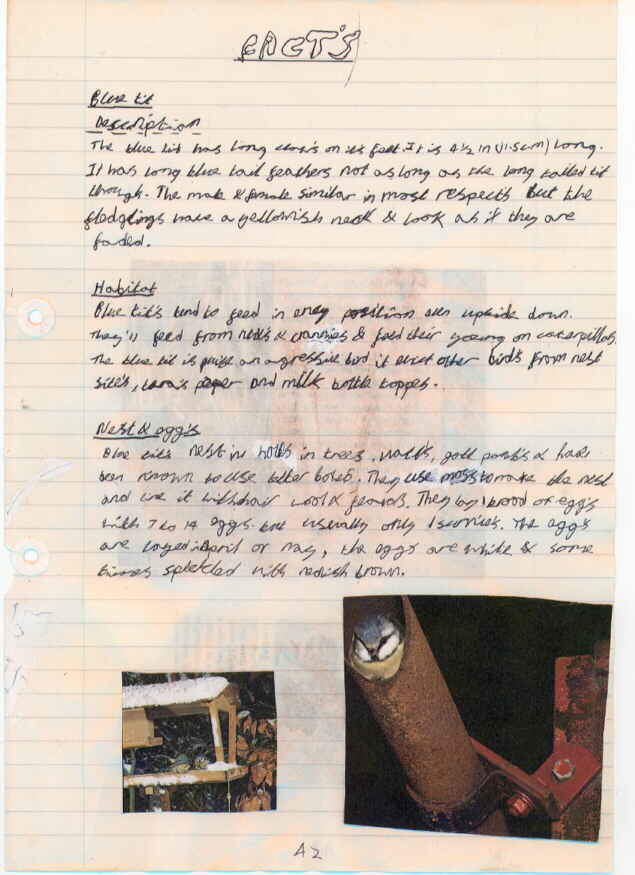 FACT'S
Blue tit
Description
The blue tit has long claws on its feet. It is 4½ in (11.5cm) long.
It has long blue tail feathers not as long as the long tailed tit
though. The male & female similar in most respects But the
fledglings have a yellowish neck & look as if they are
faded.
Habitat
Blue tit's tend to feed in every position even upside down.
They'll feed from nets & crannies & feed their young on caterpillars.
The blue tit is quite an aggressive bird it evict other birds from nest
site's, tara's paper and milk bottle toppes.
Nest & egg's
Blue tits nest in holes in trees, walls, gate post's & have
been known to use letter boxes. They use moss to make the nest
and line it with hair wool & feathers. They lay 1 brood of egg's
with 7 to 14 eggs but usually only 1 survives. The egg's
are layed in April or May, the eggs are white & some
times speckled with redish brown.
42